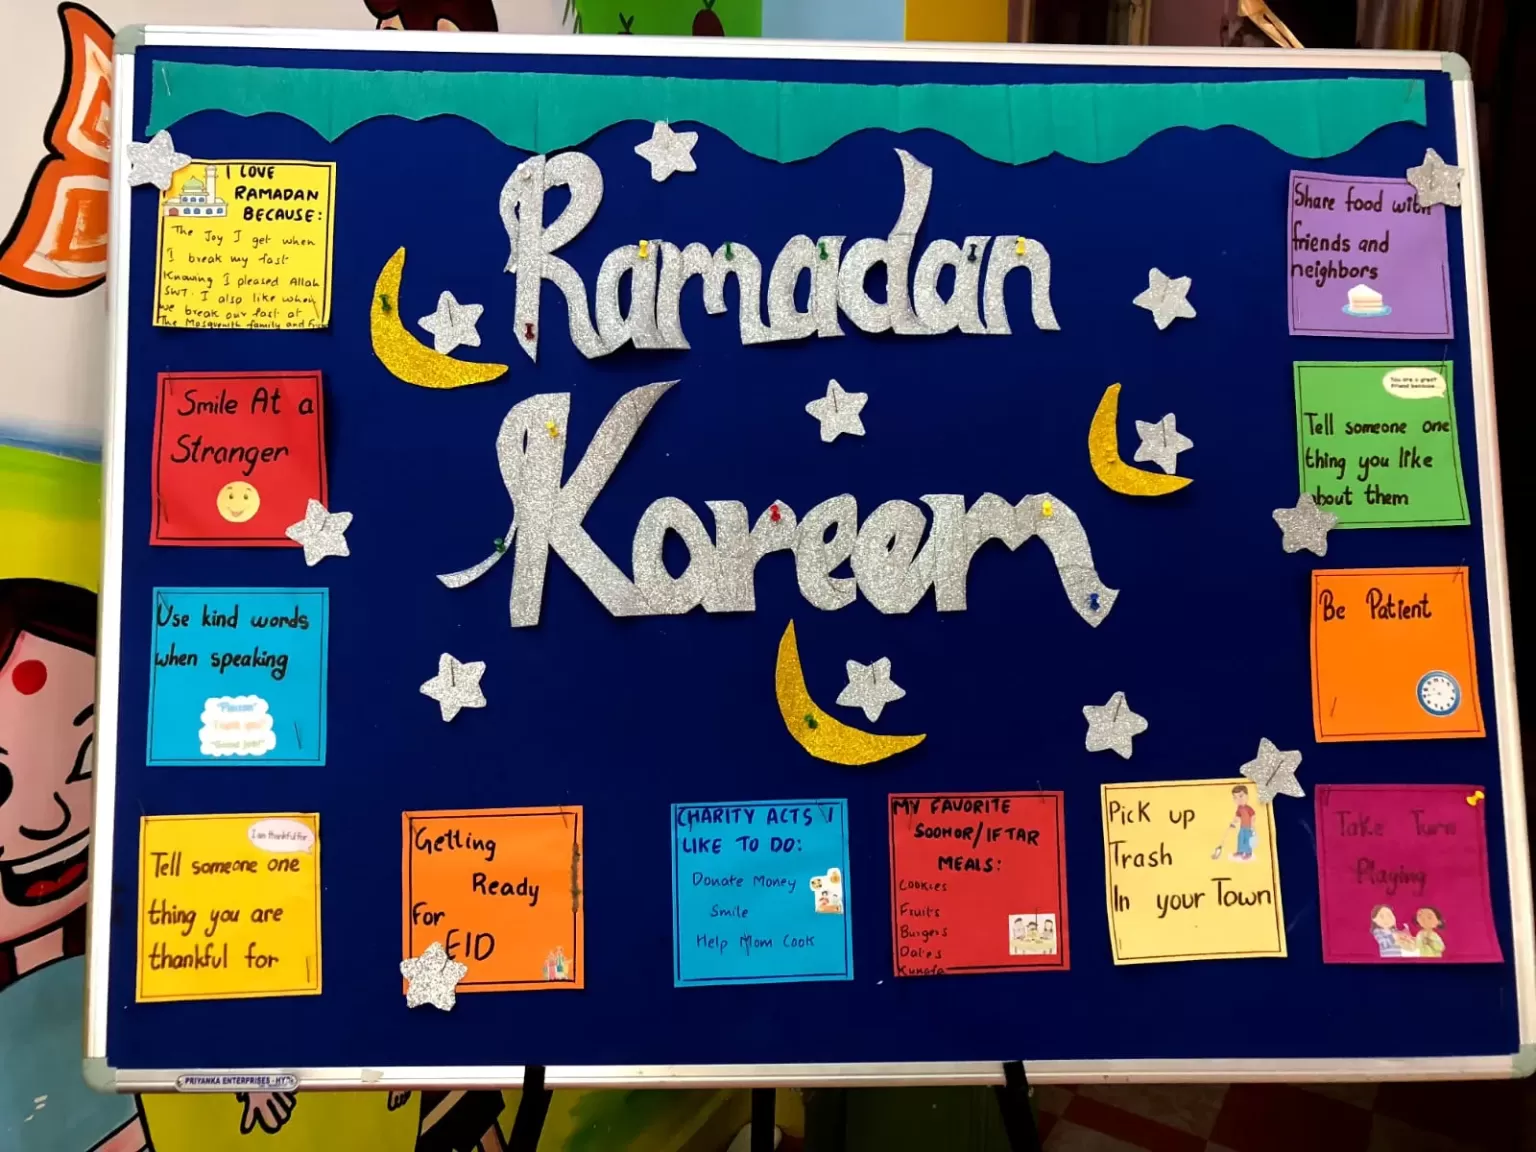 Ramadan
Kareem
I LOVE
RAMADAN
BECAUSE:
The Joy I get when
I break my fast
Knowing I pleased Allah
SWT. I also like when
we break our fast at
The Mosque with family and
Smile At a
Stranger
Use kind words
when speaking
"Please"
"Thank you"
"Good job!"
I am thankful for
Tell someone one
thing you are
thankful for
Getting
Ready
For
EID
CHARITY ACTS I
LIKE TO DO:
Donate Money
Smile
Help Mom Cook
MY FAVORITE
SOOHOR/IFTAR
MEALS:
Cookies
Fruits
Burgers
Dates
Kunafa
Pick up
Trash
In your Town
Take Turn
Playing
Be Patient
You are a great
friend because...
Tell someone one
thing you like
about them
Share food with
friends and
neighbors
PRIYANKA ENTERPRISES - HY